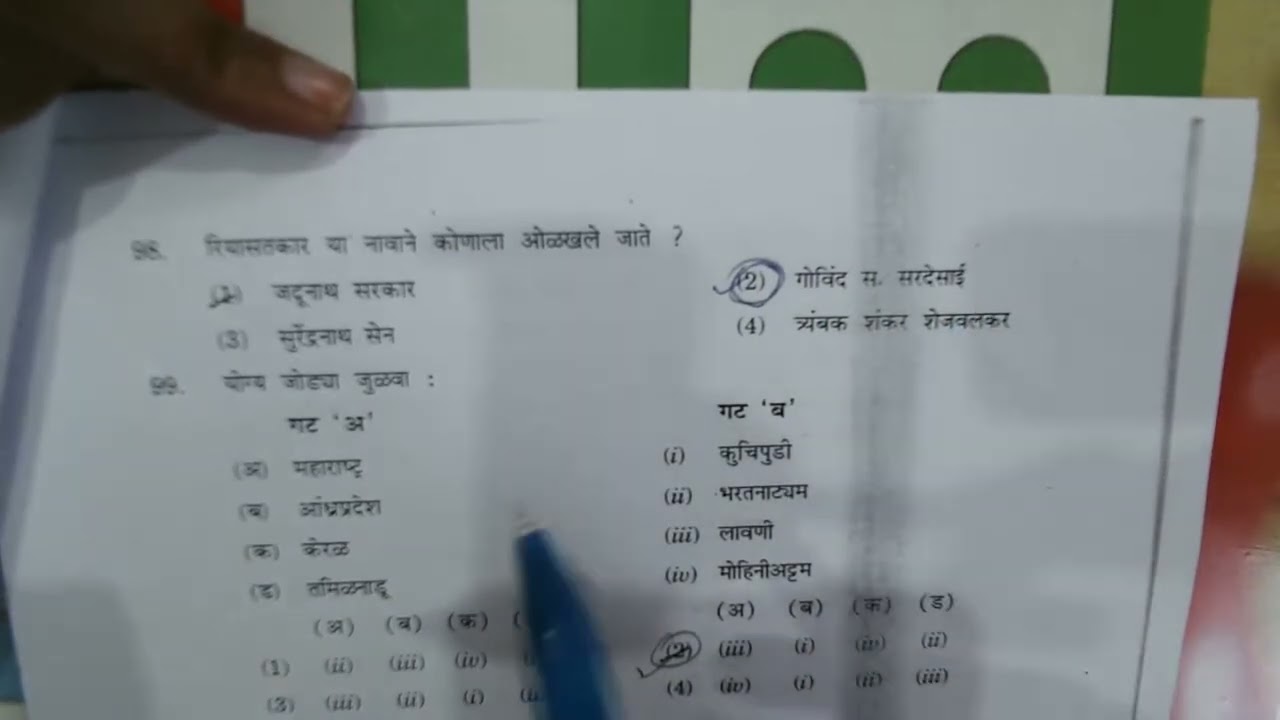 98. रियासतकार या नावाने कोणाला ओळखले जाते ?
(1) जदूनाथ सरकार (2) गोविंद स. सरदेसाई
(3) सुरेंद्रनाथ सेन (4) त्र्यंबक शंकर शेजवलकर
99. योग्य जोड्या जुळवा :
गट ‘अ’ गट ‘ब’
(अ) महाराष्ट्र (i) कुचिपुडी
(ब) आंध्रप्रदेश (ii) भरतनाट्यम
(क) केरळ (iii) लावणी
(ड) तमिळनाडू (iv) मोहिनीअट्टम
(अ) (ब) (क) (अ) (ब) (क) (ड)
(1) (ii) (iii) (iv) (2) (iii) (i) (iv) (ii)
(3) (iii) (ii) (i) (4) (iv) (i) (ii) (iii)